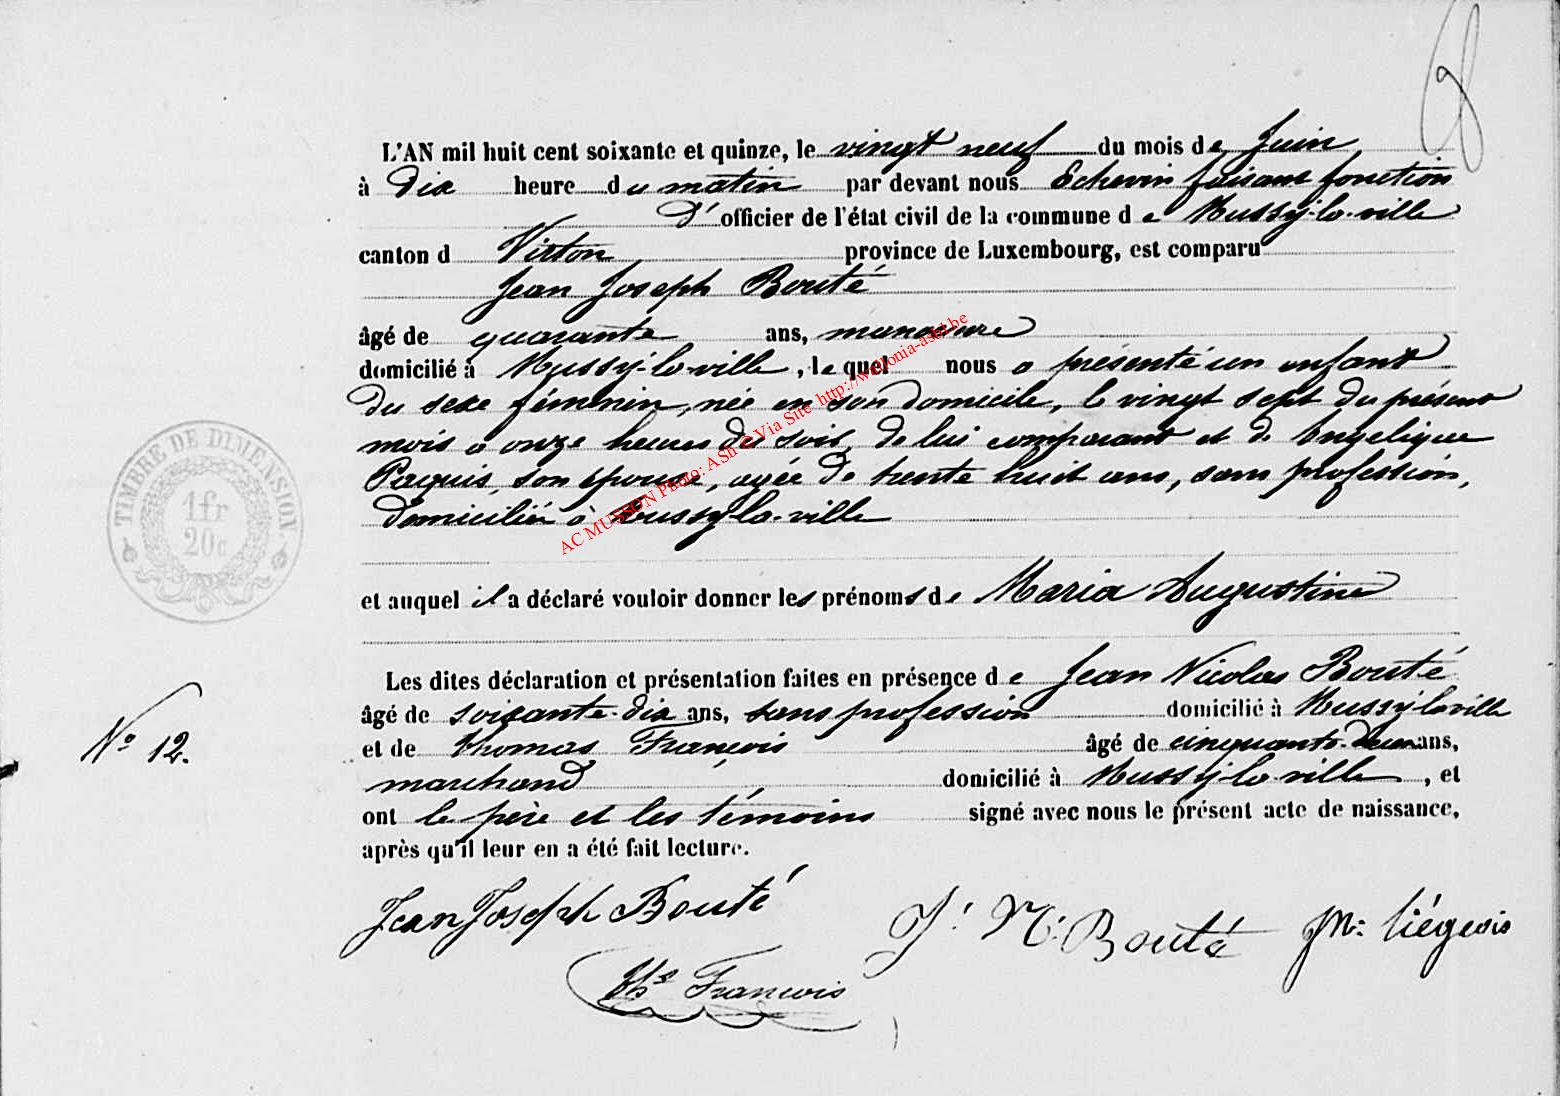 L'AN mil huit cent soixante et quinze, le vingt neuf du mois de Juin,
à Dix heure du matin par devant nous Echevin faisant fonction
D'officier de l'état civil de la commune de Mussy-la-ville
canton d Virton, province de Luxembourg, est comparu
Jean Joseph Bouté
âgé de quarante ans, manœuvre
domicilié à Mussy-la-ville, lequel nous a présenté un enfant
Du sexe féminin, née en son domicile, le vingt sept du présent
mois à onze heures du soir, de lui comparant et de Angelique
Paquis, son épouse, agée de trente huit ans, sans profession,
domiciliée à Mussy-la-ville
et auquel il a déclaré vouloir donner les prénoms de Maria Augustine
Les dites déclaration et présentation faites en présence de Jean Nicolas Bouté
âgé de soixante-dix ans, sans profession domicilié à Mussy-la ville
et de Thomas François âgé de cinquante-deux ans,
marchand domicilié à Mussy-la-ville, et
ont le père et les témoins signé avec nous le présent acte de naissance,
après qu'il leur en a été fait lecture.
Jean Joseph Bouté
J. N. Bouté
Liégeois
Ths François
N° 12.
TIMBRE DE DIMENSION
1fr
20c
AC MUSSON Photo: ASn - Via Site http://wallonia-asbl.be